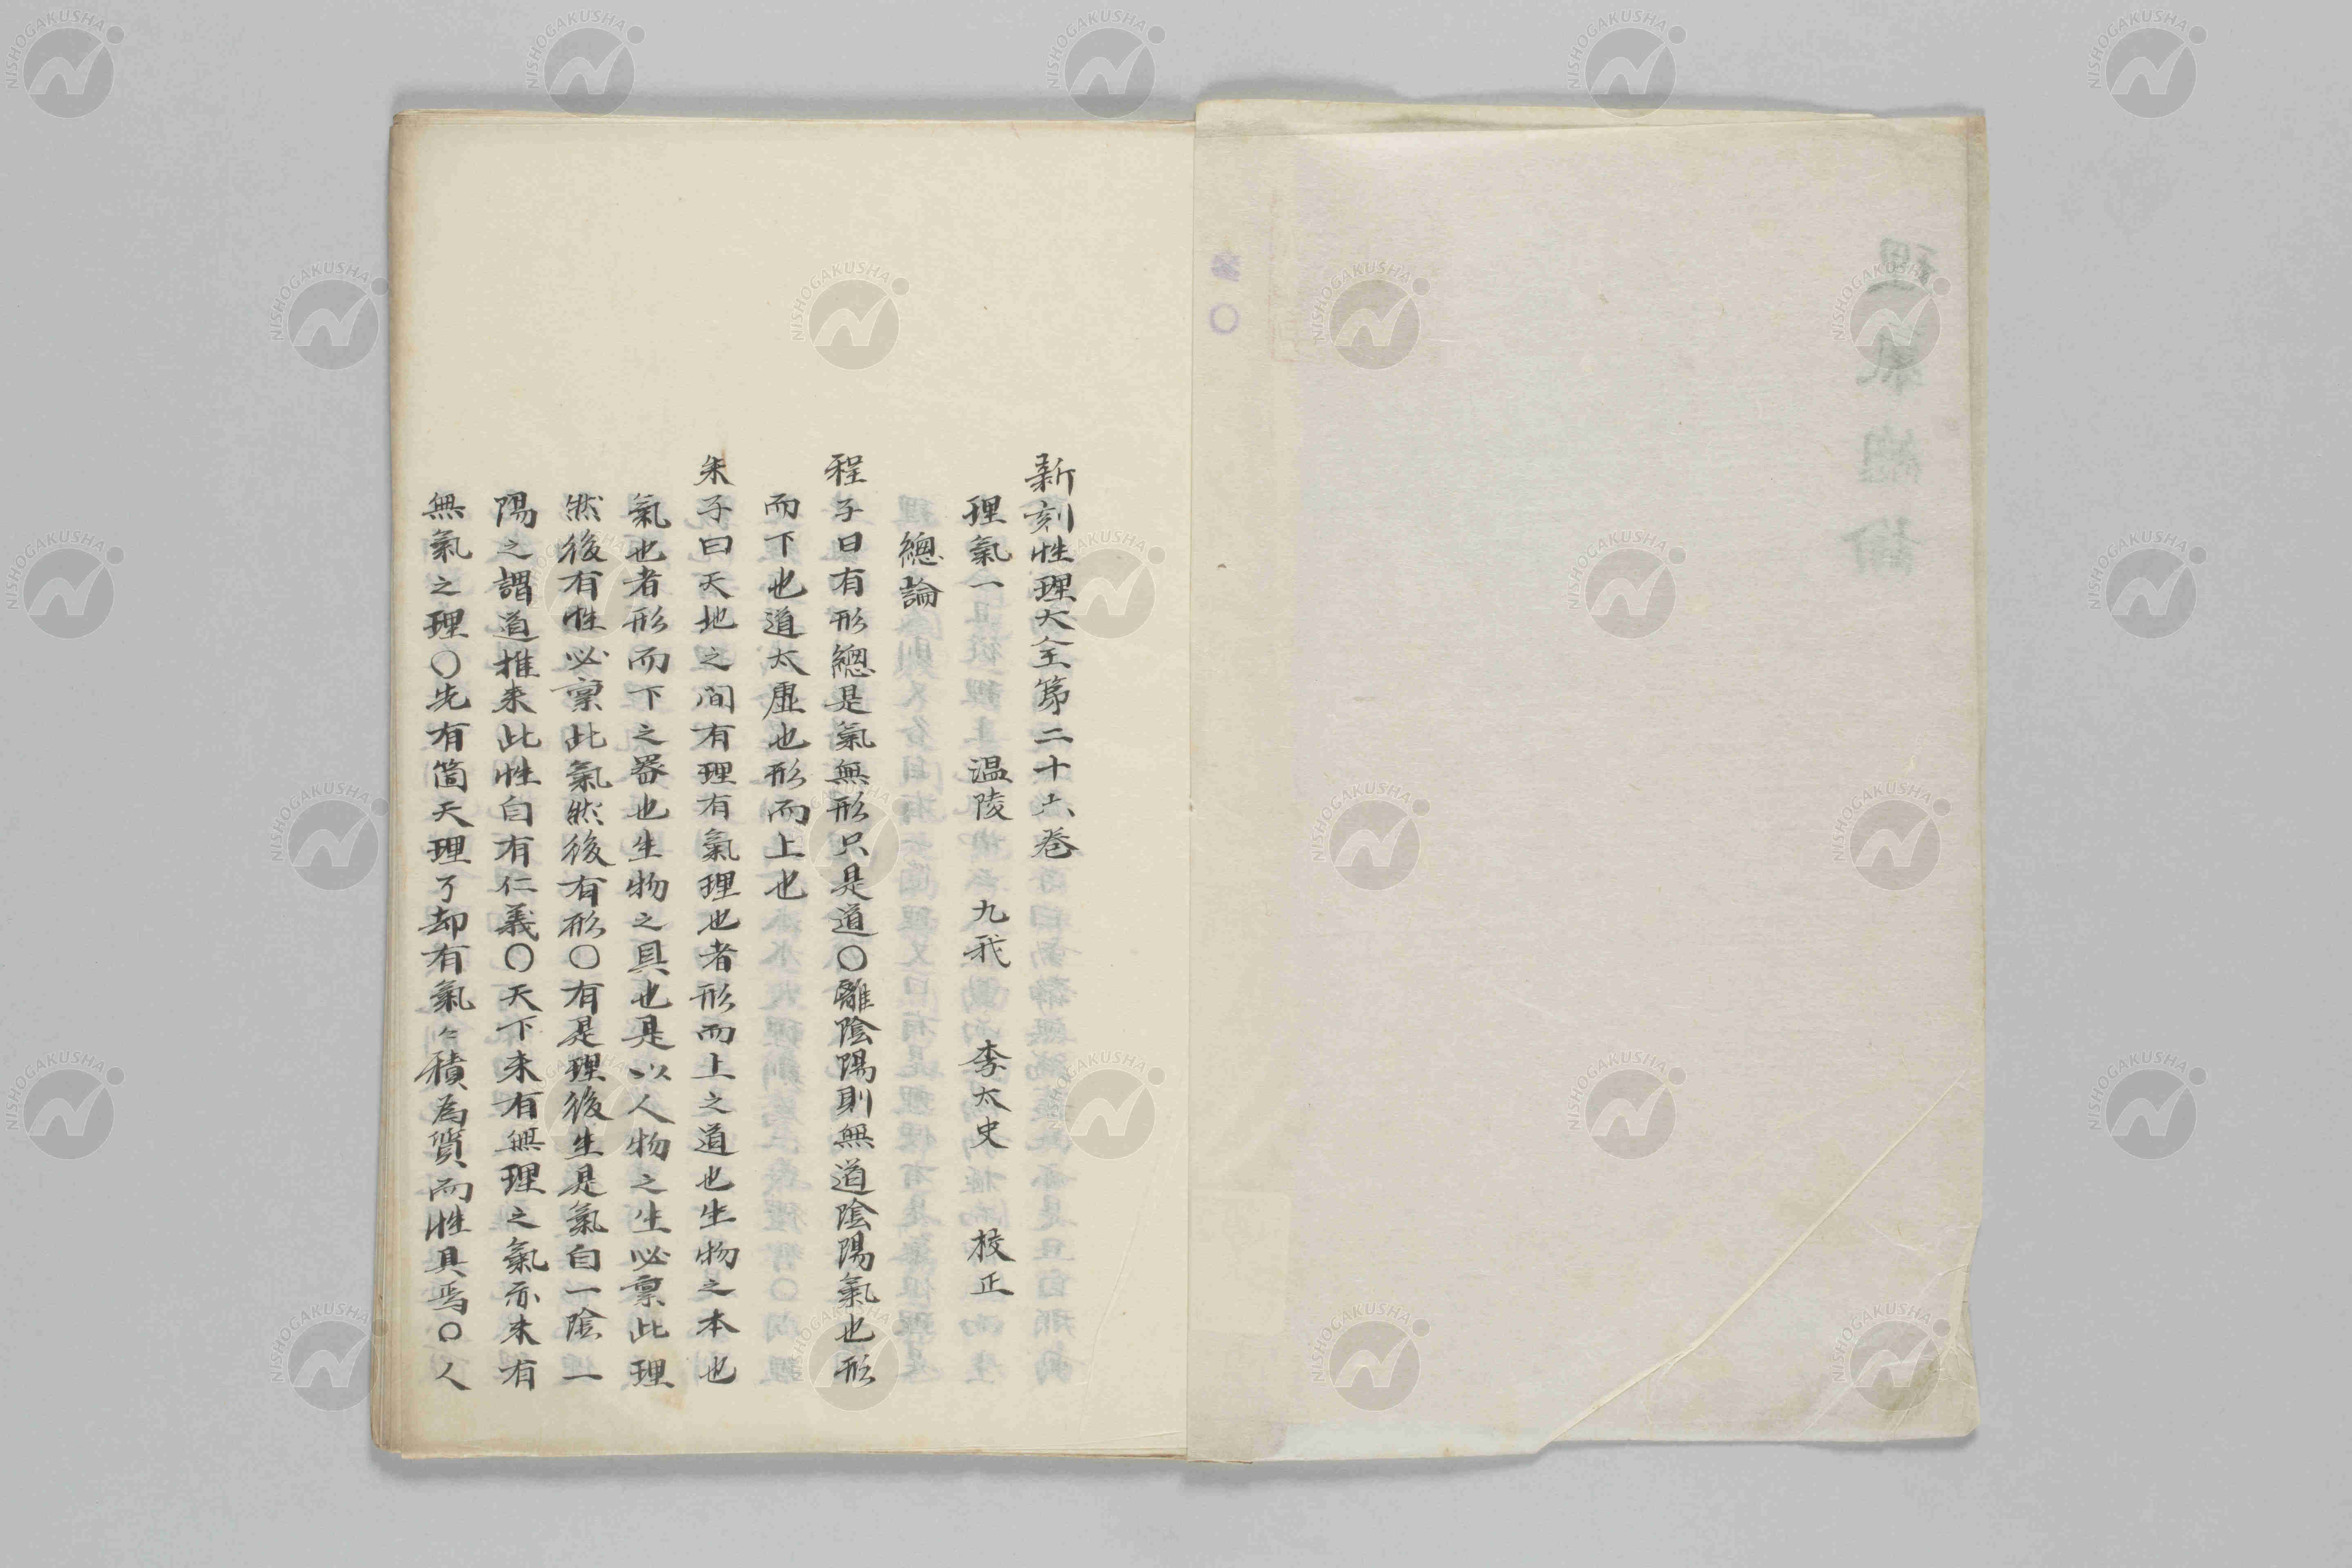 理氣總論
新刻性理大全第二十六卷
理氣一 温陵 九我 李太史 校正
總論
程子曰有形總是氣無形只是道〇離陰陽則無道陰陽氣也形
而下也道太虛也形而上也
朱子曰天地之間有理有氣理也者形而上之道也生物之本也
氣也者形而下之器也生物之具也是以人物之生必禀此理
然後有性必禀此氣然後有形〇有是理後生是氣自一陰一
陽之謂道推来此性自有仁義〇天下未有無理之氣亦未有
無氣之理〇先有箇天理了却有氣〻積為質而性具焉〇人
NISHOGAKUSHA